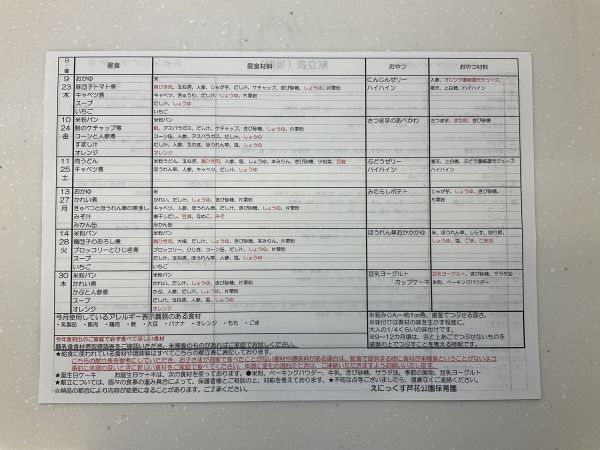 日
曜
昼食
昼食材料
おやつ
おやつ材料
9
23
木
おかゆ
豚団子トマト煮
キャベツ煮
スープ
いちご
米
豚ひき肉、玉ねぎ、人参、じゃが芋、だし汁、ケチャップ、きび砂糖、しょうゆ、片栗粉
キャベツ、きゅうり、だし汁、片栗粉
だし汁、しょうゆ
いちご
にんじんゼリー
ハイハイン
人参、オレンジ濃縮還元ジュース、
寒天、上白糖、ハイハイン
10
24
金
米粉パン
鮭のケチャップ煮
コーンと人参煮
すまし汁
オレンジ
米粉パン
鮭、アスパラガス、だし汁、ケチャップ、きび砂糖、しょうゆ、片栗粉
コーン缶、人参、アスパラガス、だし汁、しょうゆ
だし汁、人参、えのき、ほうれん草、しょうゆ
オレンジ
さつま芋のあべかわ
さつま芋、きな粉、きび砂糖
11
25
土
肉うどん
キャベツ煮
米粉うどん、玉ねぎ、鶏ひき肉、人参、塩、しょうゆ、本みりん、きび砂糖、小松菜、豆腐
ほうれん草、人参、キャベツ、だし汁、しょうゆ
ぶどうゼリー
ハイハイン
寒天、上白糖、ぶどう濃縮還元ジュース
ハイハイン
13
27
月
おかゆ
かれい煮
きゃべつとほうれん草の煮浸し
みそ汁
みかん缶
米
かれい、だし汁、しょうゆ、きび砂糖、片栗粉
キャベツ、人参、ほうれん草、だし汁、きび砂糖、しょうゆ、片栗粉
煮干しだし、豆腐、なめこ、みそ
みかん缶
みたらしポテト
じゃが芋、しょうゆ、きび砂糖、
片栗粉
14
28
火
米粉パン
鶏団子のおろし煮
ブロッコリーとひじき煮
スープ
いちご
米粉パン
鶏ひき肉、大根、だし汁、しょうゆ、きび砂糖、本みりん、片栗粉
ブロッコリー、ひじき、コーン缶、だし汁、しょうゆ、片栗粉
だし汁、玉ねぎ、人参、塩、しょうゆ
いちご
ほうれん草おかかかゆ
米、ほうれん草、しらす、削り節、
しょうゆ、塩、ごま、ごま油
30
木
米粉パン
かれい煮
かぶと人参煮
スープ
オレンジ
米粉パン
かれい、だし汁、しょうゆ、きび砂糖、片栗粉
かぶ、人参、だし汁、しょうゆ、片栗粉
だし汁、玉ねぎ、人参、塩、しょうゆ
オレンジ
豆乳ヨーグルト
カップケーキ
豆乳ヨーグルト、きび砂糖、サラダ油
米粉、ベーキングパウダー
今月使用しているアレルギー表示義務のある食材
・乳製品 ・豚肉 ・鶏肉 ・鮭 ・大豆 ・バナナ ・オレンジ ・もも ・ごま
※粗みじん～約1cm角、歯茎でつぶせる固さ。
※味付けは素材の味を生かす程度に、
大人の1/4くらいの味付けです。
※9～12カ月頃は、舌と上あごでつぶせないものを
歯茎の上でつぶすことを覚える時期です。
今年度初出のご家庭で必ず食べて欲しい食材
離乳食食材摂取確認表をご確認いただき、未摂取のものがあればご家庭でお試しください。
★給食に使われている食材や調味料はすべてこちらの献立表に表記しております。
こちらの献立表を参考にしていただき、お子さまが園で食べたことがない食材や調味料がある場合は、給食で提供する時に食材が未摂食ということがないよう
★誕生日ケーキ お誕生日ケーキは、次の食材を使っております。●米粉、ベーキングパウダー、牛乳、きび砂糖、サラダ油、季節の果物、豆乳ヨーグルト
★献立については、個々の食事の進み具合によって、保護者様とご相談の上、対応を考えております。★不明な点等ございましたら、遠慮なくご連絡ください。
☆納品の都合により内容が変更になることがあります。ご了承ください。
えにっくす芦花公園保育園